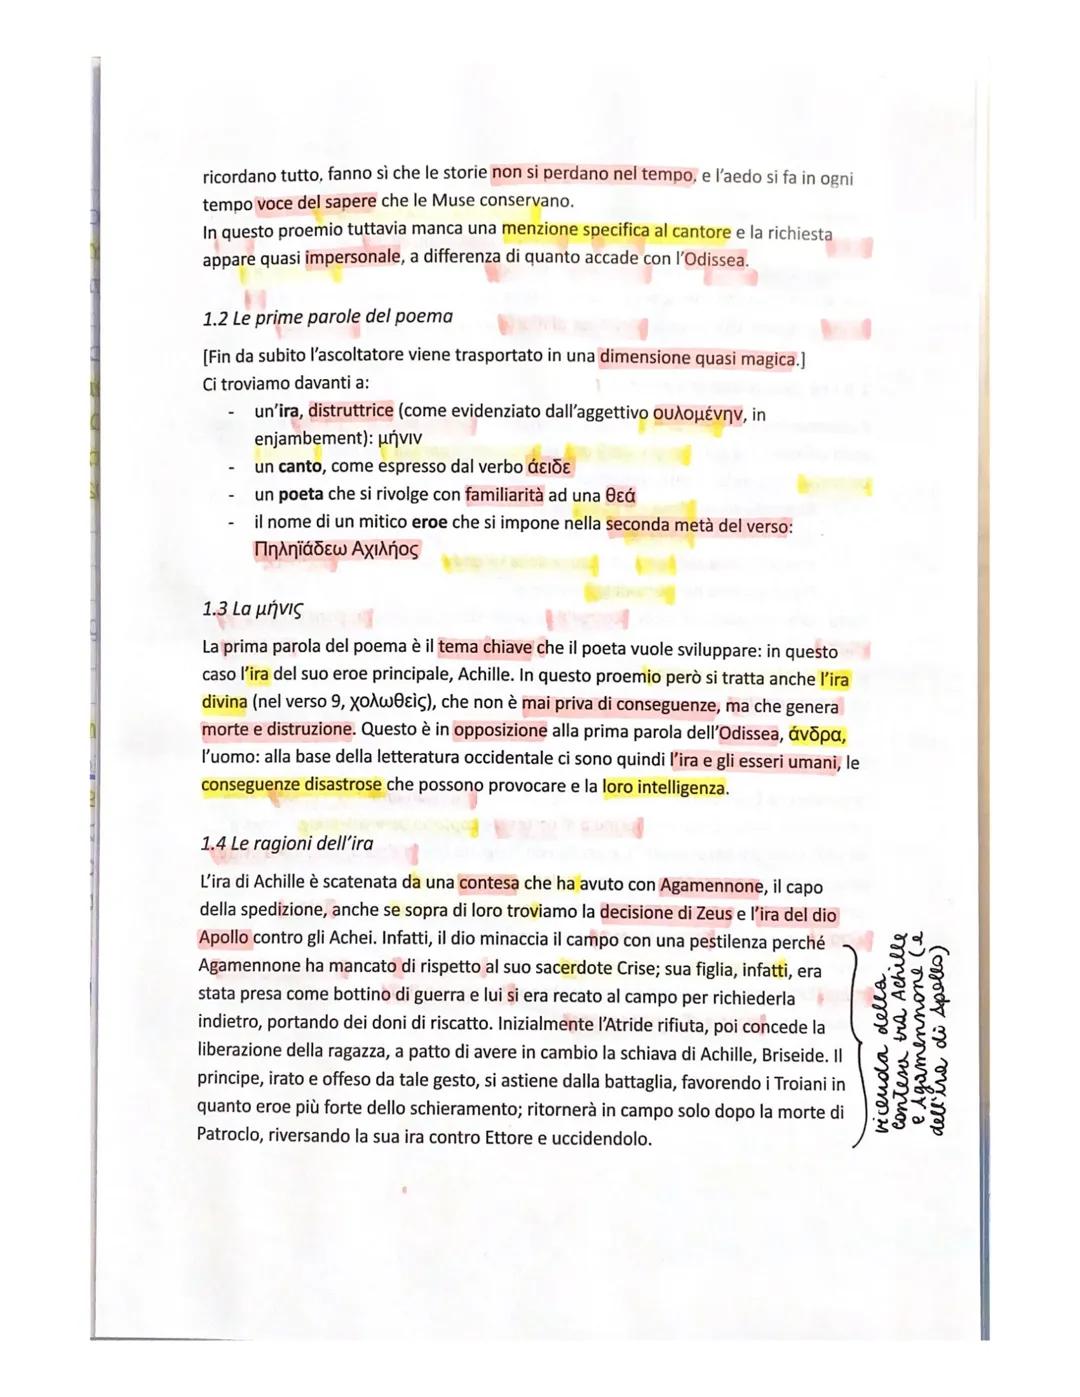 ricordano tutto, fanno sì che le storie non si perdano nel tempo, e l'aedo si fa in ogni
tempo voce del sapere che le Muse conservano.
In questo proemio tuttavia manca una menzione specifica al cantore e la richiesta
appare quasi impersonale, a differenza di quanto accade con l'Odissea.
1.2 Le prime parole del poema
[Fin da subito l'ascoltatore viene trasportato in una dimensione quasi magica.]
Ci troviamo davanti a:
- un'ira, distruttrice (come evidenziato dall'aggettivo ουλομένην, in
enjambement): μήνιν
- un canto, come espresso dal verbo άειδε
- un poeta che si rivolge con familiarità ad una θεά
- il nome di un mitico eroe che si impone nella seconda metà del verso:
Πηληϊάδεω Αχιλήος
1.3 La μήνις
La prima parola del poema è il tema chiave che il poeta vuole sviluppare: in questo
caso l'ira del suo eroe principale, Achille. In questo proemio però si tratta anche l'ira
divina (nel verso 9, χολωθεὶς), che non è mai priva di conseguenze, ma che genera
morte e distruzione. Questo è in opposizione alla prima parola dell'Odissea, άνδρα,
l'uomo: alla base della letteratura occidentale ci sono quindi l'ira e gli esseri umani, le
conseguenze disastrose che possono provocare e la loro intelligenza.
1.4 Le ragioni dell'ira
L'ira di Achille è scatenata da una contesa che ha avuto con Agamennone, il capo
della spedizione, anche se sopra di loro troviamo la decisione di Zeus e l'ira del dio
Apollo contro gli Achei. Infatti, il dio minaccia il campo con una pestilenza perché
Agamennone ha mancato di rispetto al suo sacerdote Crise; sua figlia, infatti, era
stata presa come bottino di guerra e lui si era recato al campo per richiederla
indietro, portando dei doni di riscatto. Inizialmente l'Atride rifiuta, poi concede la
liberazione della ragazza, a patto di avere in cambio la schiava di Achille, Briseide. Il
principe, irato e offeso da tale gesto, si astiene dalla battaglia, favorendo i Troiani in
quanto eroe più forte dello schieramento; ritornerà in campo solo dopo la morte di
Patroclo, riversando la sua ira contro Ettore e uccidendolo.
vicenda della
contesa tra Achille
e Agamennone (e
dell'ira di Apollo)